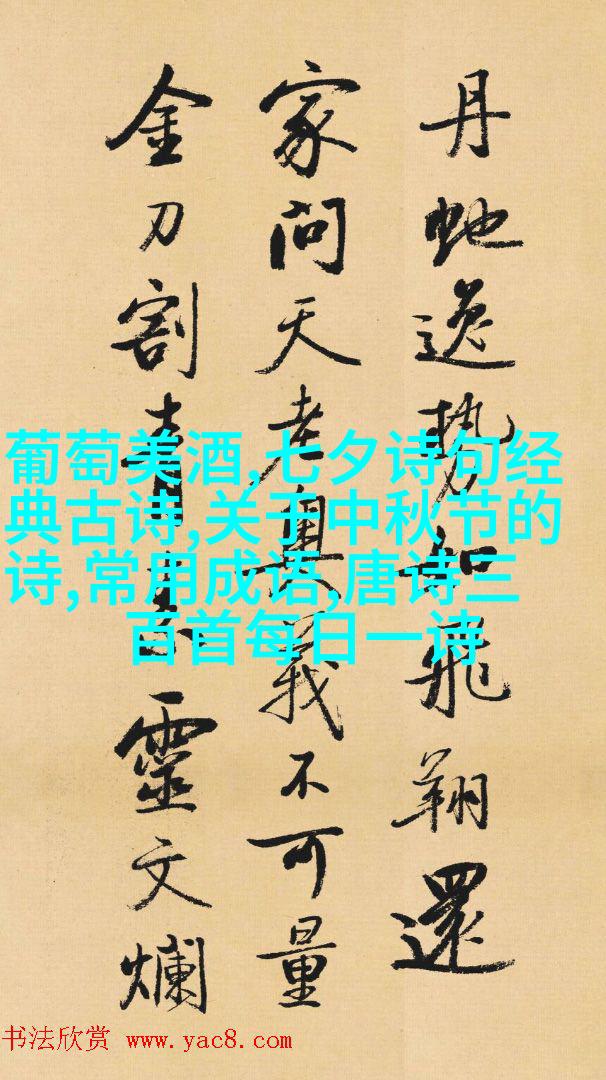 丹虵逸勢如飛翔還
家問天老奥義不可量
金刀割青 靈文爛
葡萄美酒,七夕诗句经
典古诗,关于中秋节的
诗,常用成语,唐诗三
百首每日一诗
书法欣赏 www.yac8.com